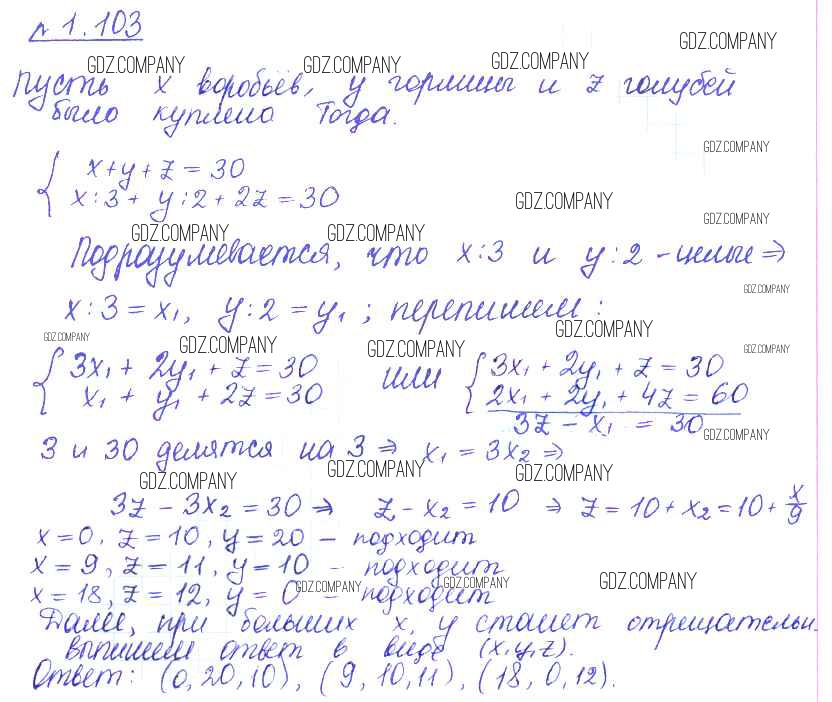 № 1.103
GDZ.COMPANY
GDZ.COMPANY GDZ.COMPANY GDZ.COMPANY
Пусть x воробьёв, y горлицы и z голубей
было куплено Тогда.
GDZ.COMPANY
x+y+z=30
x:3+y:2+2z=30
GDZ.COMPANY
GDZ.COMPANY
GDZ.COMPANY GDZ.COMPANY
Подразумевается, что x:3 и y:2 - целые ⇒
GDZ.COMPANY
x:3=x₁, y:2=y₁; перепишем:
GDZ.COMPANY
GDZ.COMPANY GDZ.COMPANY GDZ.COMPANY GDZ.COMPANY
3x₁+2y₁+z=30 или 3x₁+2y₁+z=30
x₁+y₁+2z=30 2x₁+2y₁+4z=60
3z-x₁=30
GDZ.COMPANY
3 и 30 делятся на 3 ⇒ x₁=3x₂ ⇒
GDZ.COMPANY GDZ.COMPANY GDZ.COMPANY
3z-3x₂=30 ⇒ z-x₂=10 ⇒ z=10+x₂=10+x/9
x=0, z=10, y=20 - подходит
x=9, z=11, y=10 - подходит
GDZ.COMPANY GDZ.COMPANY GDZ.COMPANY
x=18, z=12, y=0 - подходит
Далее, при больших x, y станет отрицательн.
выпишем ответ в виде (x,y,z).
Ответ: (0,20,10), (9,10,11), (18,0,12).